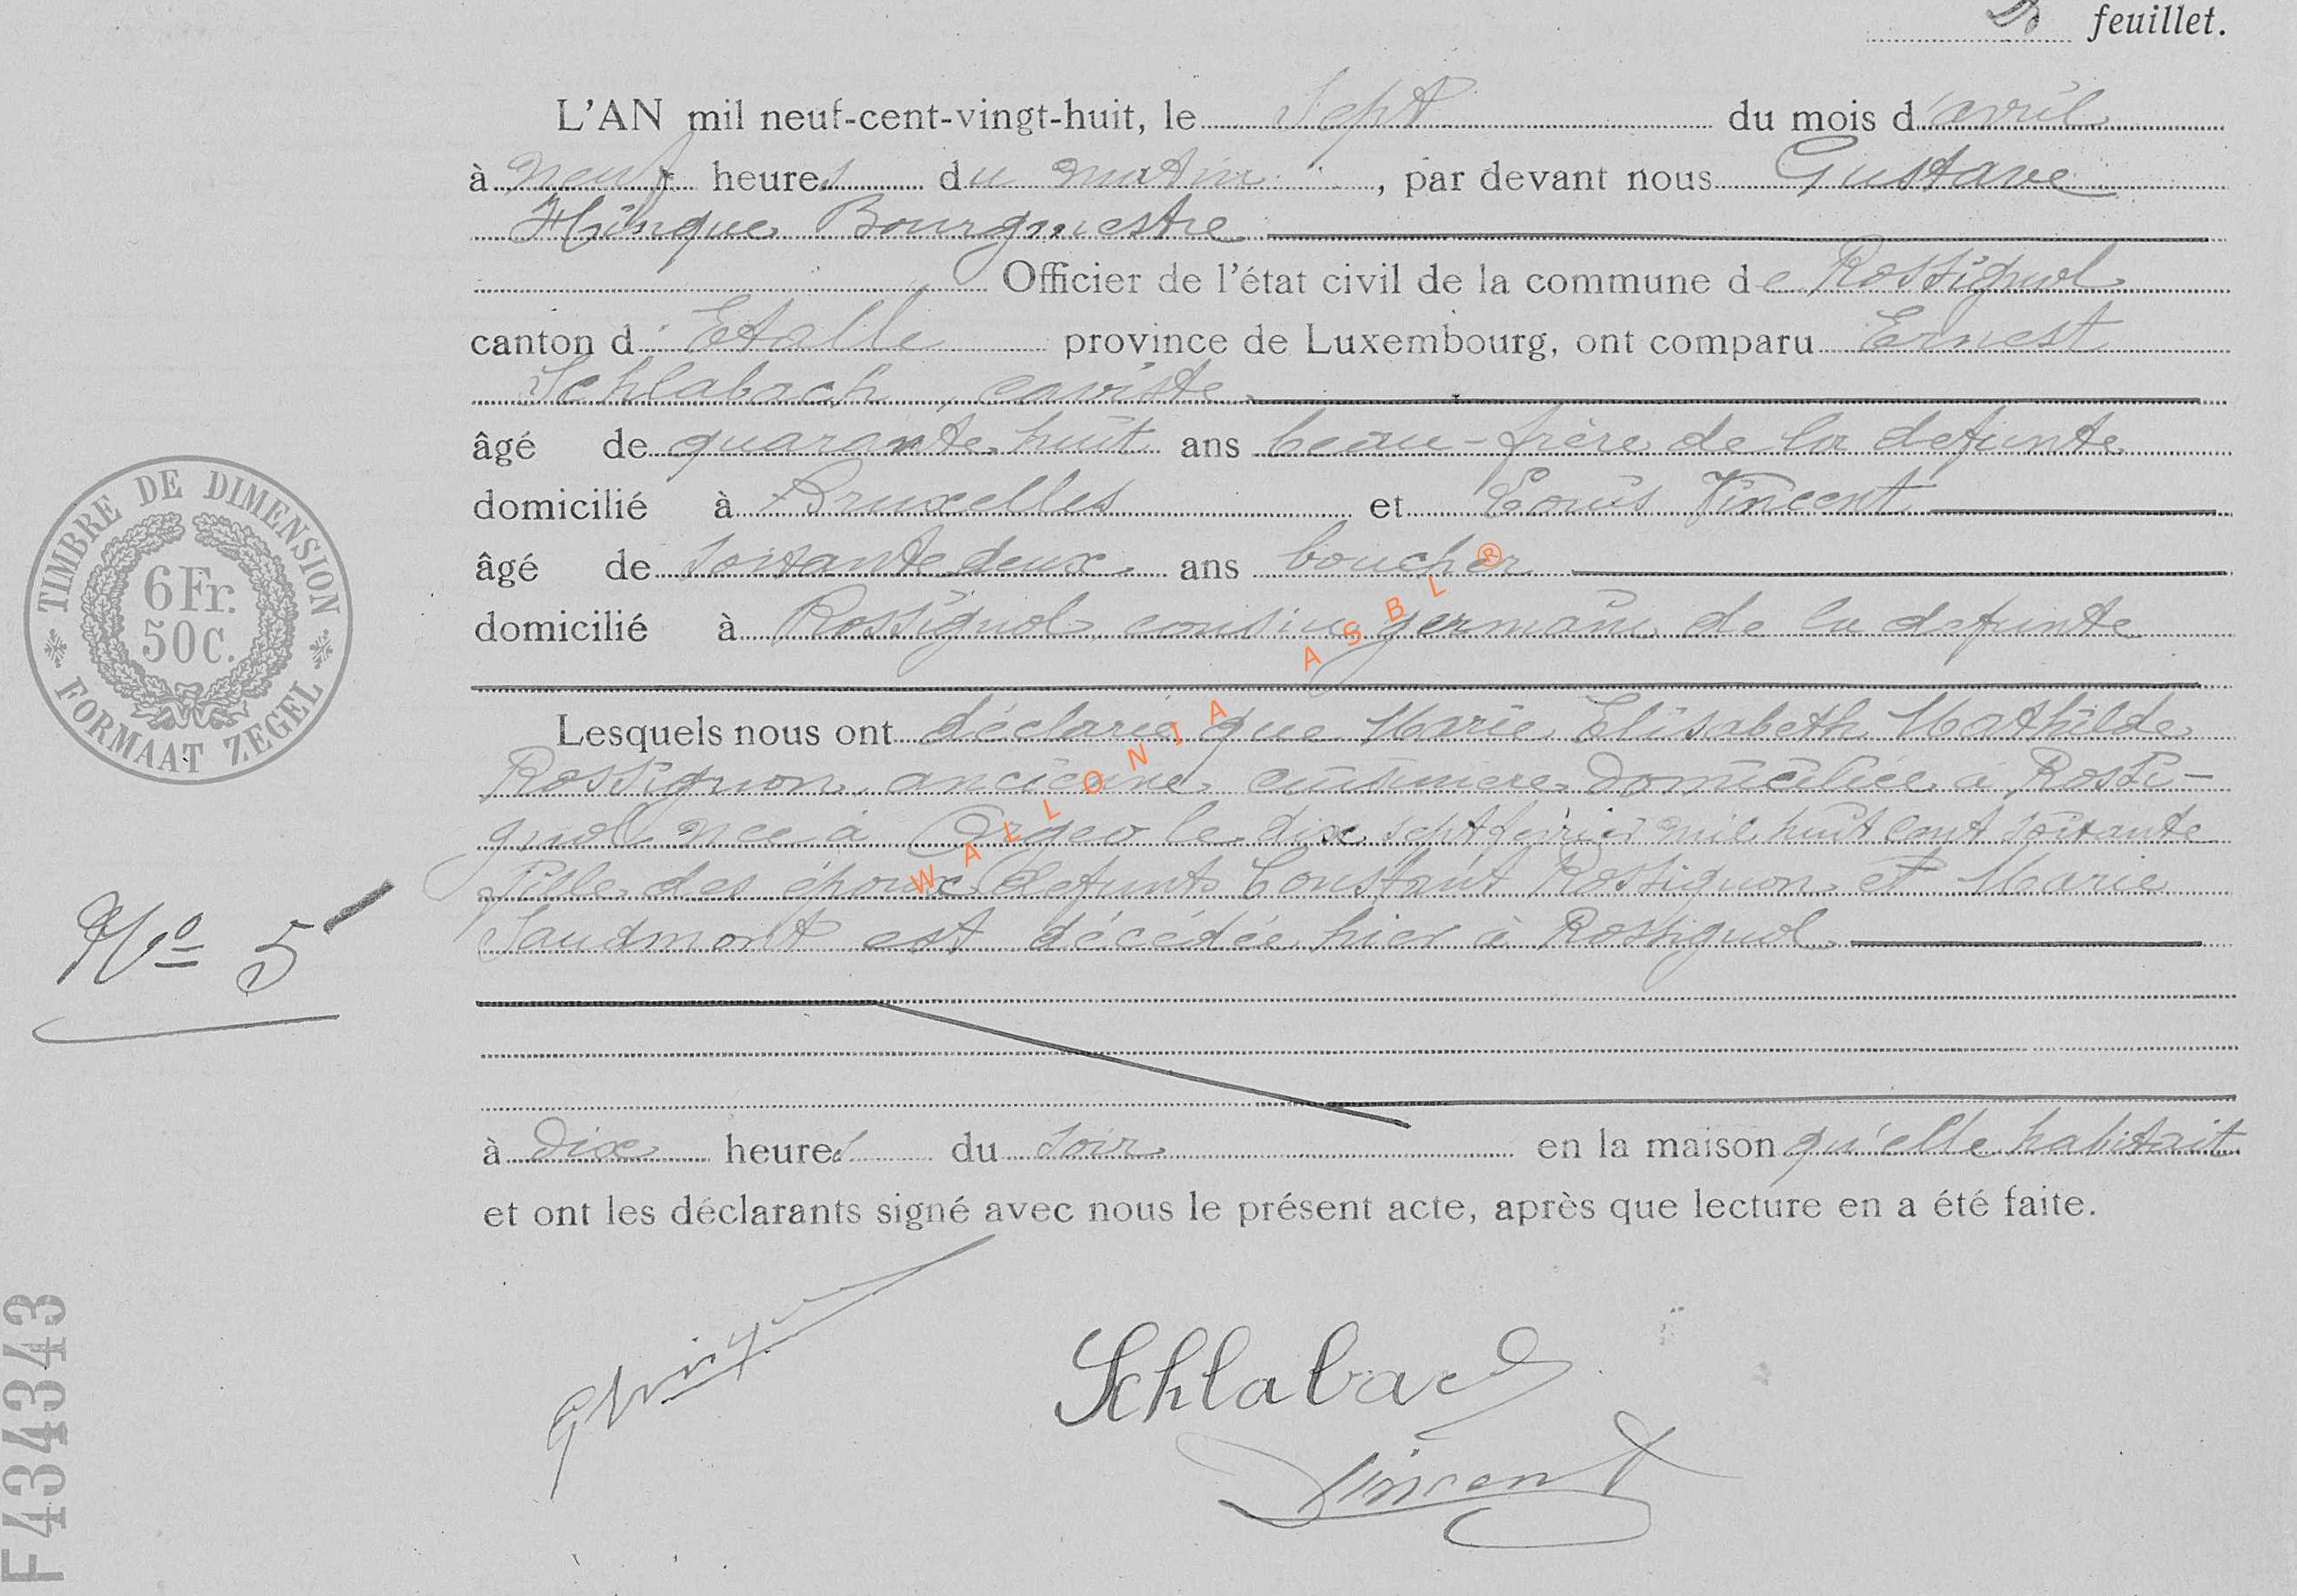 feuillet.
L'AN mil neuf-cent-vingt-huit, le Sept du mois d'avril
à neuf heures du matin, par devant nous Gustave
Hinque Bourgmestre
Officier de l'état civil de la commune de Rossignol
canton d'Etalle province de Luxembourg, ont comparu Ernest
Schlabach, caviste
âgé de quarante huit ans beau-frère de la defunte
domicilié à Bruxelles et Louis Vincent
âgé de soixante deux ans boucher
domicilié à Rossignol cousin germain de la defunte
Lesquels nous ont déclaré que Marie Elisabeth Mathilde
Rossignon ancienne cuisiniere domiciliée à Rossi-
gnol née à Orgeo le dix sept février mil huit cent soixante
fille des époux defunts Constant Rossignon et Marie
Saudmont est décédée hier à Rossignol
à dix heures du soir en la maison qu'elle habitait
et ont les déclarants signé avec nous le présent acte, après que lecture en a été faite.
Schlabach
Vincent
TIMBRE DE DIMENSION
6 Fr.
50 C.
FORMAAT ZEGEL
No 5
F434343
WALLONIA ASBL ®